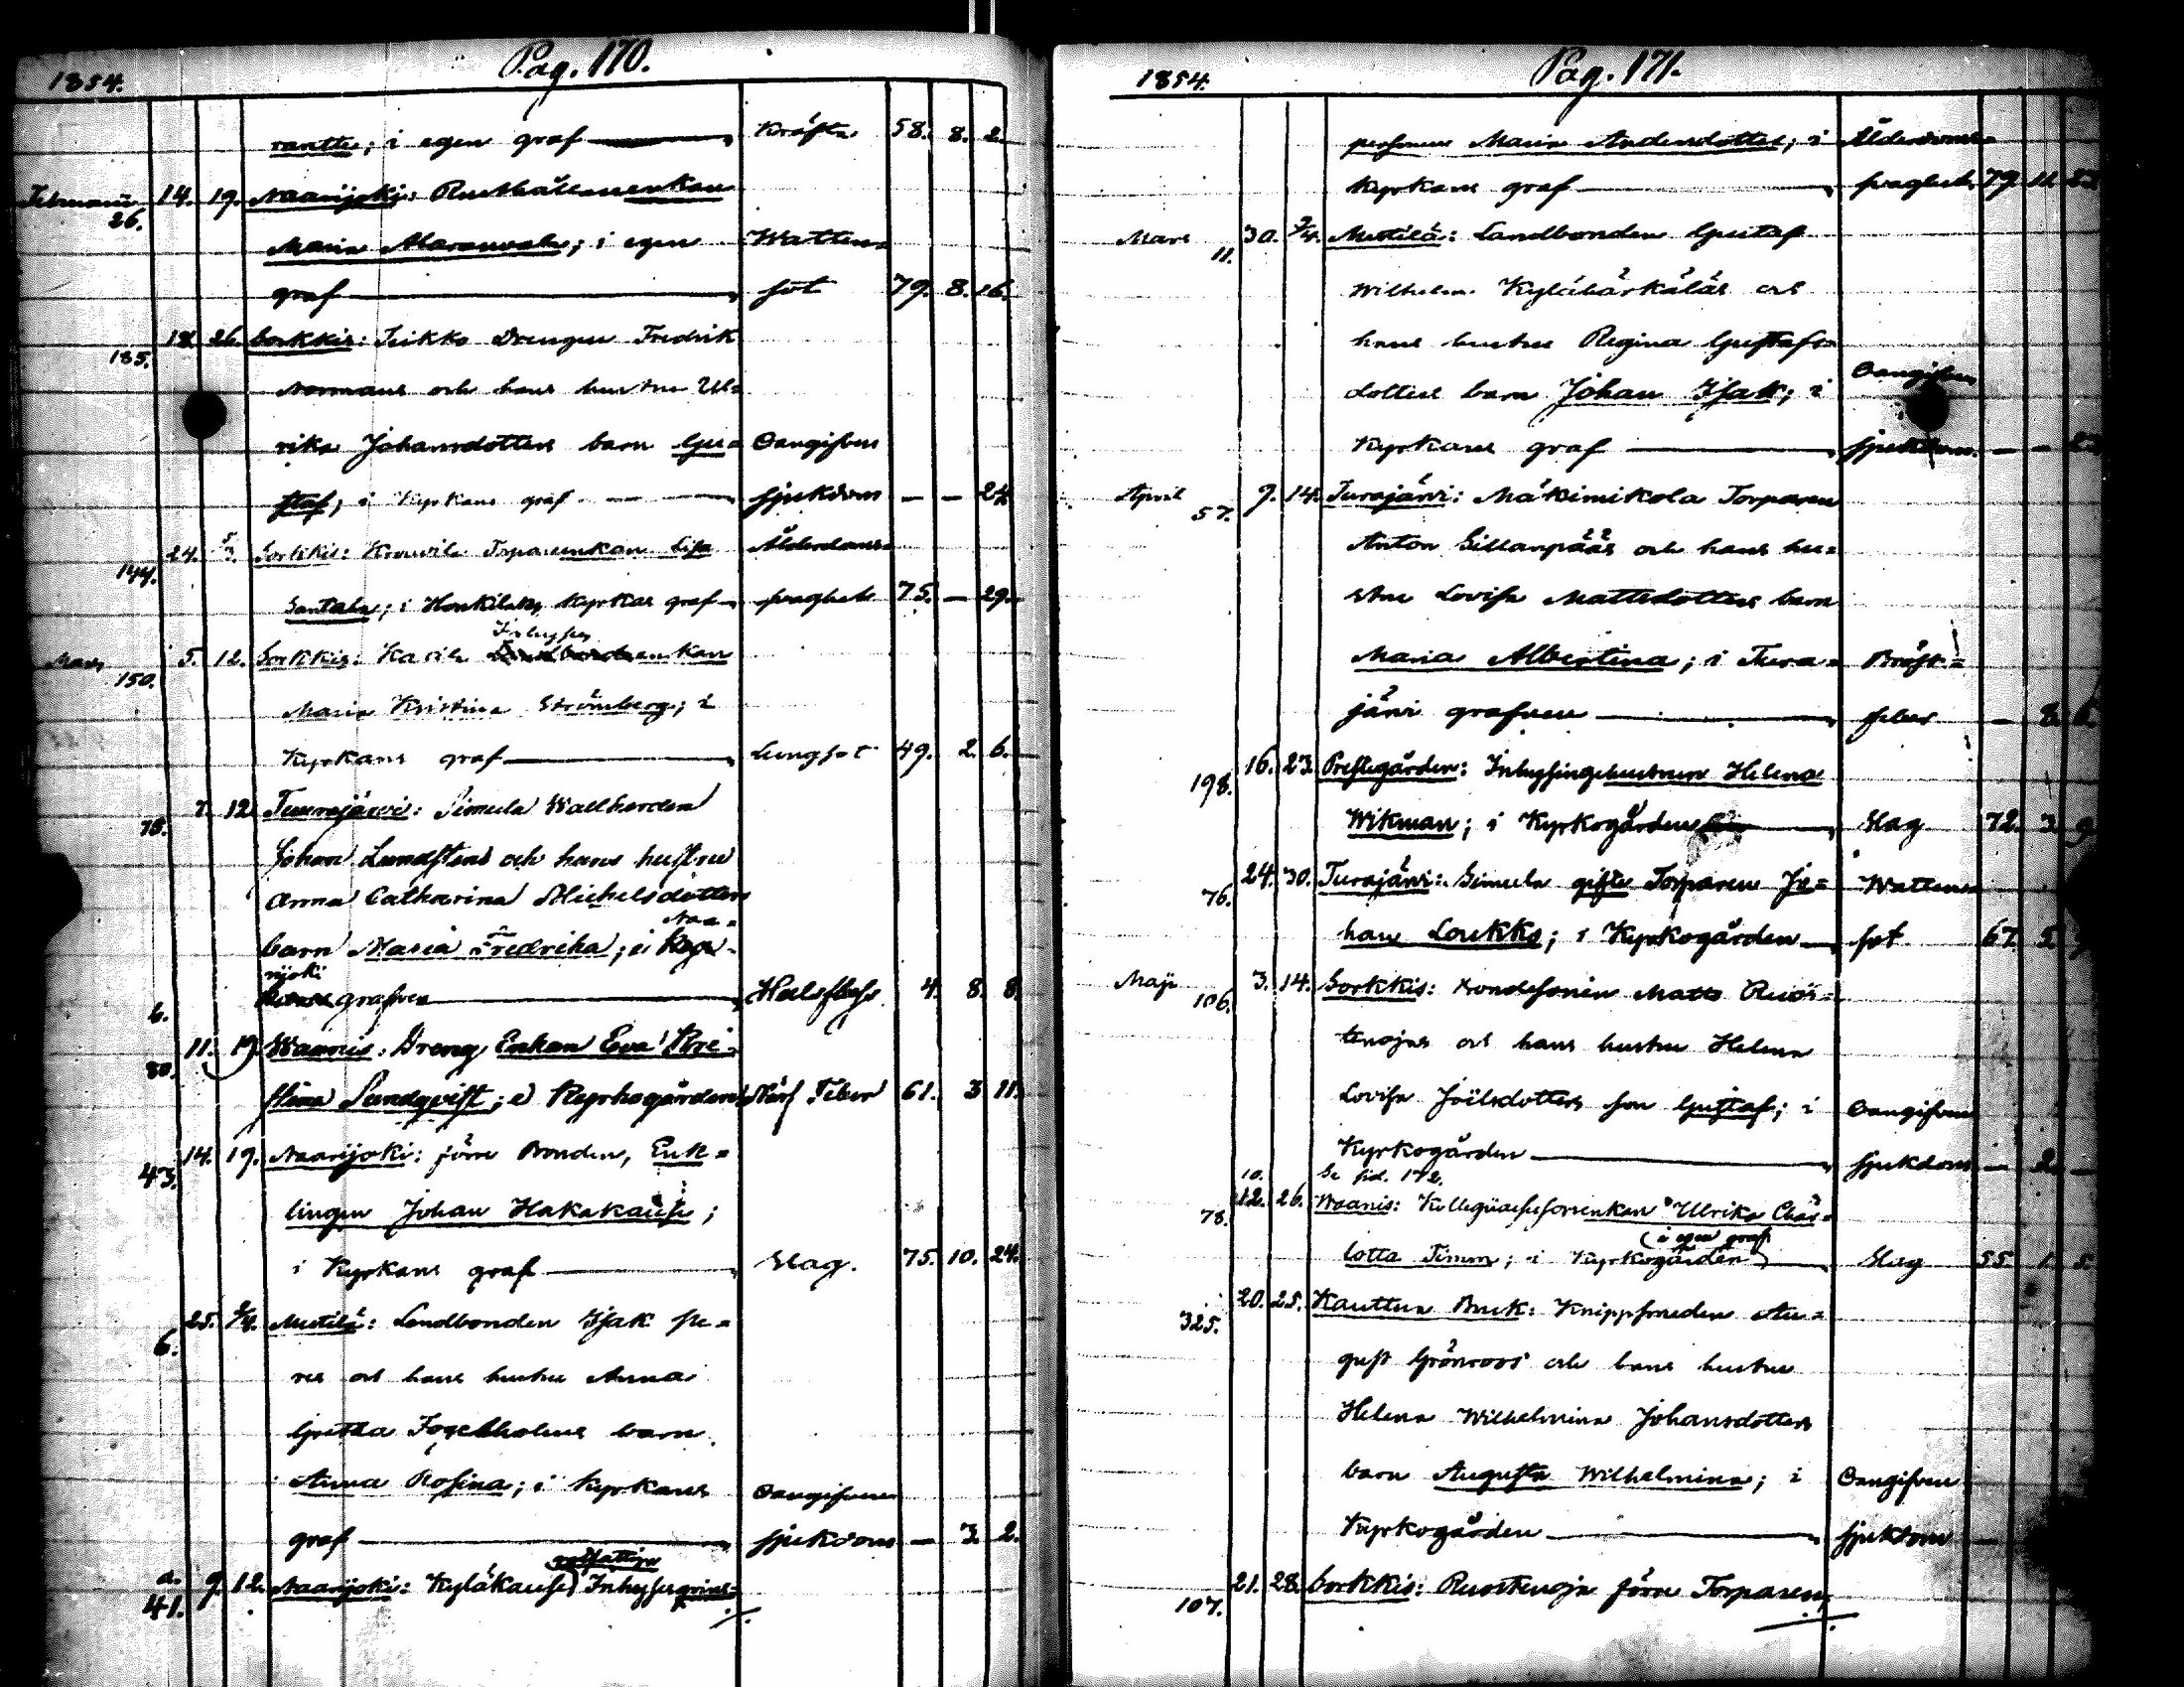 1854.
Pag. 170.
rantte; i egen graf Kräfta 58. 8. 2.
Februarii 14. 19. Naarijoki: Rusthållareenkan
26.
Maria ; i egen Watten-
graf sot 79. 8. 16.
18. 26. Sorkkis: Drengen Fredrik
185.
Normans och hans hustru Ul=
rika Johansdotters barn Gu= Oangifven
staf; i Kyrkans graf sjukdom — — 24.
24. 5/3. Sorkkis: Krouvila Torpareenkan Lisa Ålderdoms-
144.
Santala; i Honkilaks Kyrkas graf svaghet 75. — 29.
Inhyses
Mars 5. 12. Sorkkis: enkan
150.
Maria Kristina Strömberg; i
Kyrkans graf Lungsot 49. 2. 6.
7. 12. Tuurajärvi: Simula Wallherden
78.
Johan Lundstens och hans hustru
Anna Catharina Michelsdotters
Naa=
barn Maria Fredrika; i
rijoki
grafven Halsfluss 4. 8. 8.
6.
11. 19. Waanis: Dreng Enkan Eva Kri=
80.
stina Lundqvist; i Kyrkogården Nerf Feber 61. 3 11.
14. 19. Naarijoki: förre Bonden, Enk=
43.
lingen Johan Hakakause;
i Kyrkans graf Slag. 75. 10. 24.
25. 2/4. Mestilä: Landbonden Isak
6.
och hans hustru Anna
Greta Fogelholms barn
Anna Rosina; i Kyrkans Oangifven
graf sjukdom — 3. 2.
a. 9. 12. Naarijoki: Kyläkause Inhyses
41.
1854.
Pag. 171.
personen Maria Andersdotter; i Ålderdoms-
Kyrkans graf svaghet 79. 11.
Mars 30. 2/4. Mestilä: Landbonden Gustaf
11.
Wilhelm och
hans hustru Regina Gustafs=
dotters barn Johan Isak; i Oangifven
Kyrkans graf sjukdom. — —
April 9. 14. Turajärvi: Mäkimikola Torparen
57.
Anton Sillanpääs och hans hu=
stru Lovisa Mattsdotters barn
Maria Albertina; i Tura= Bröst=
järvi grafven feber — 8. 6.
16. 23. Prestegården: Inhysingehustrun Helena
198.
Wikman; i Kyrkogården Slag 72. 3. 9.
24. 30. Turajärvi: Simula gifte Torparen Jo= Watten-
76.
han Loukko; i Kyrkogården sot 67. 5.
Maji 3. 14. Sorkkis: Bondesonen Matts Ruos=
106.
tenojas och hans hustru Helena
Lovisa Joëlsdotters son Gustaf; i Oangifven
Kyrkogården sjukdom — 2. —
10. Se sid. 172.
12. 26. Waanis: Kollegiiassessorsenkan Ulrika Char=
78.
(i egen graf)
lotta Timm; i Kyrkogården Slag 55. 1. 5.
20. 25. Kauttua Bruk: Knippsmeden Au=
325.
gust Grönroos och hans hustru
Helena Wilhelmina Johansdotters
barn Augusta Wilhelmina; i Oangifven
Kyrkogården sjukdom —
21. 28. Sorkkis: Ruostenoja förre Torparen,
107.